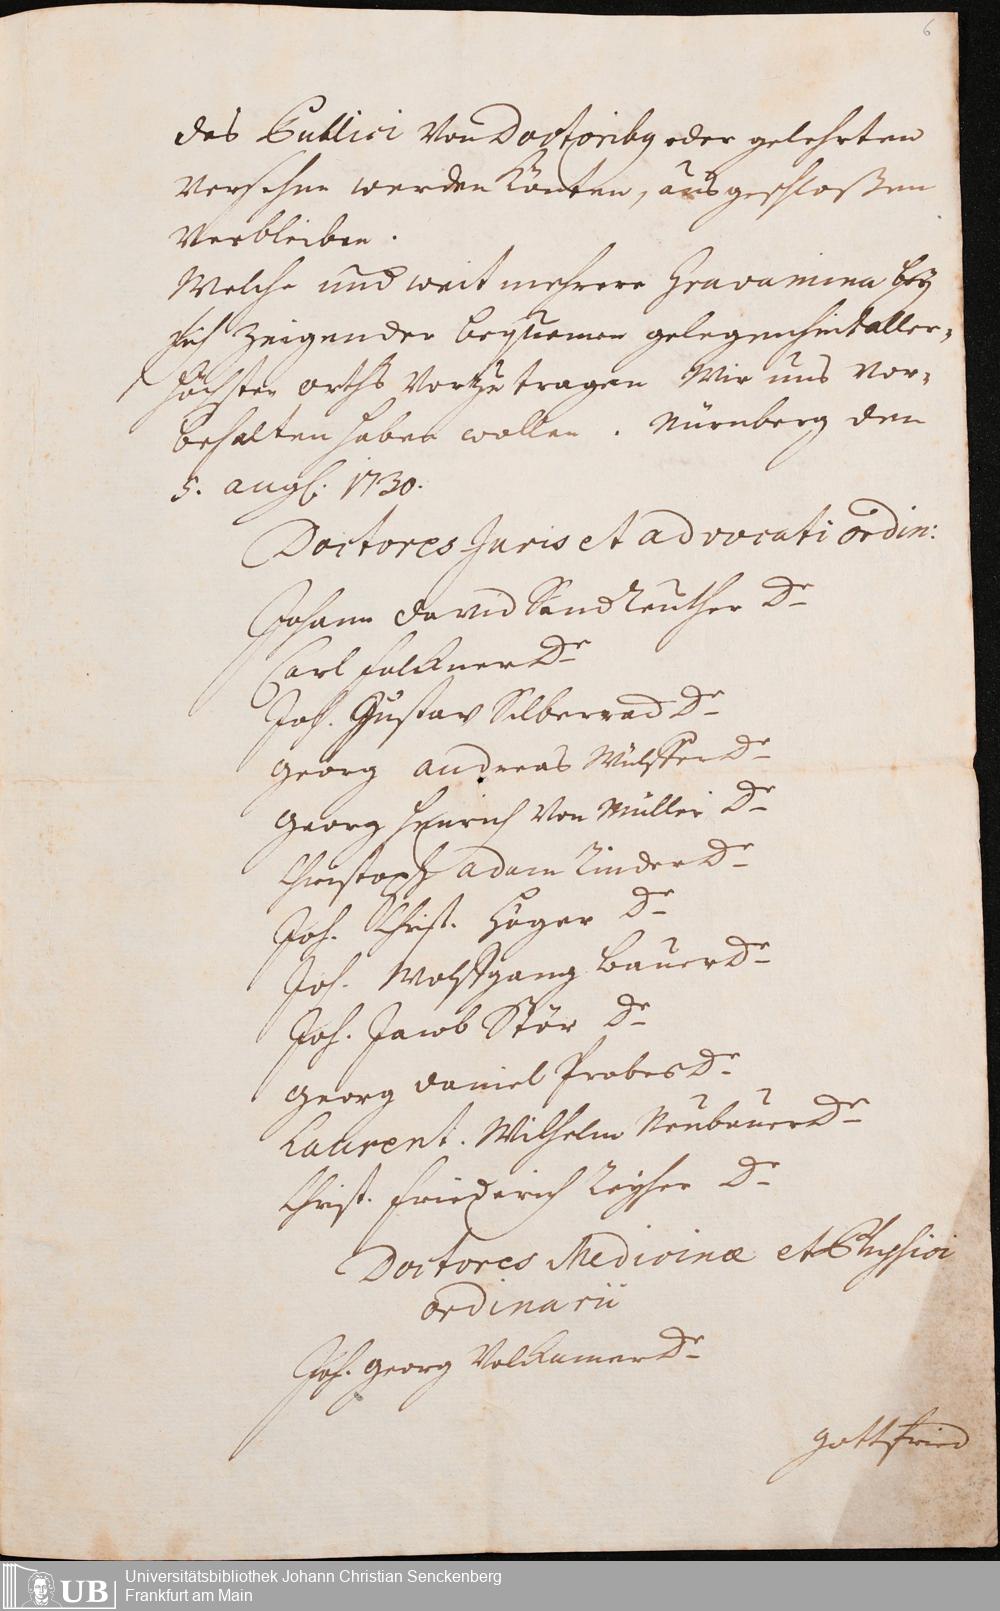 6
des Publici Von Doctoribq oder gelehrten
Versehen werden Könten, ausgeschloßen
Verbleiben.
Welche und weit mehrere Gravamina bey
sich zeigender bequemer gelegenheit aller-
höchsten orths Vorzutragen Wir uns Vor-
behalten haben wollen. Nürnberg den
5. aug. 1730.
Doctores Juris et advocati ordin:
Johann David Sandreuther Dr
Carl Falckner Dr
Joh. Gustav Silberrad Dr
Georg andreas Wülffer Dr
Georg Henrich Von Müller Dr
Christoph adam Rinder Dr
Joh. Christ. Höger Dr
Joh. Wolffgang Bauer Dr
Joh. Jacob Stör Dr
Georg Daniel Probes Dr
Laurent. Wilhelm Neubauer Dr
Christ. Friederich Leyser Dr
Doctores Medicinæ et Physici
ordinarii
Joh. Georg Volckamer Dr
Gottfried
UB
Universitätsbibliothek Johann Christian Senckenberg
Frankfurt am Main